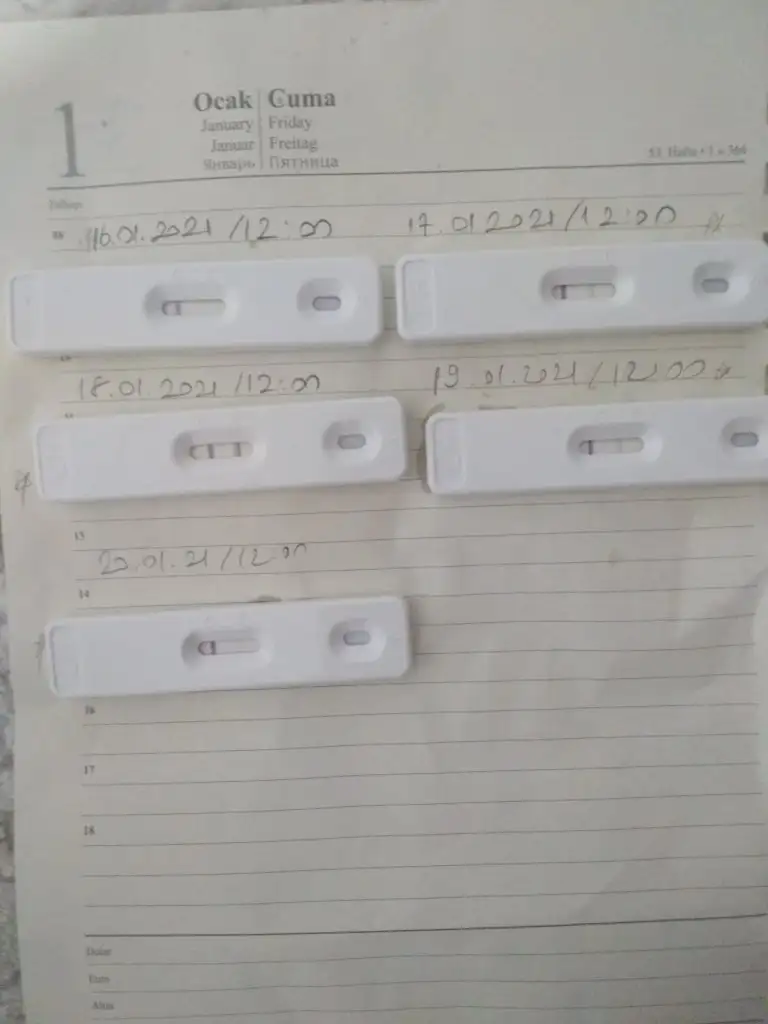 1
Ocak | Cuma
January | Friday
Januar | Freitag
Январь | Пятница
53. Hafta • 1 - 364
16.01.2021 /12:00 17.01 2021/12:00
18.01 2021/12:00 19.01.2021/12:00
13
20.01.21/12:00
14
16
17
18
Dolar
Euro
Altın